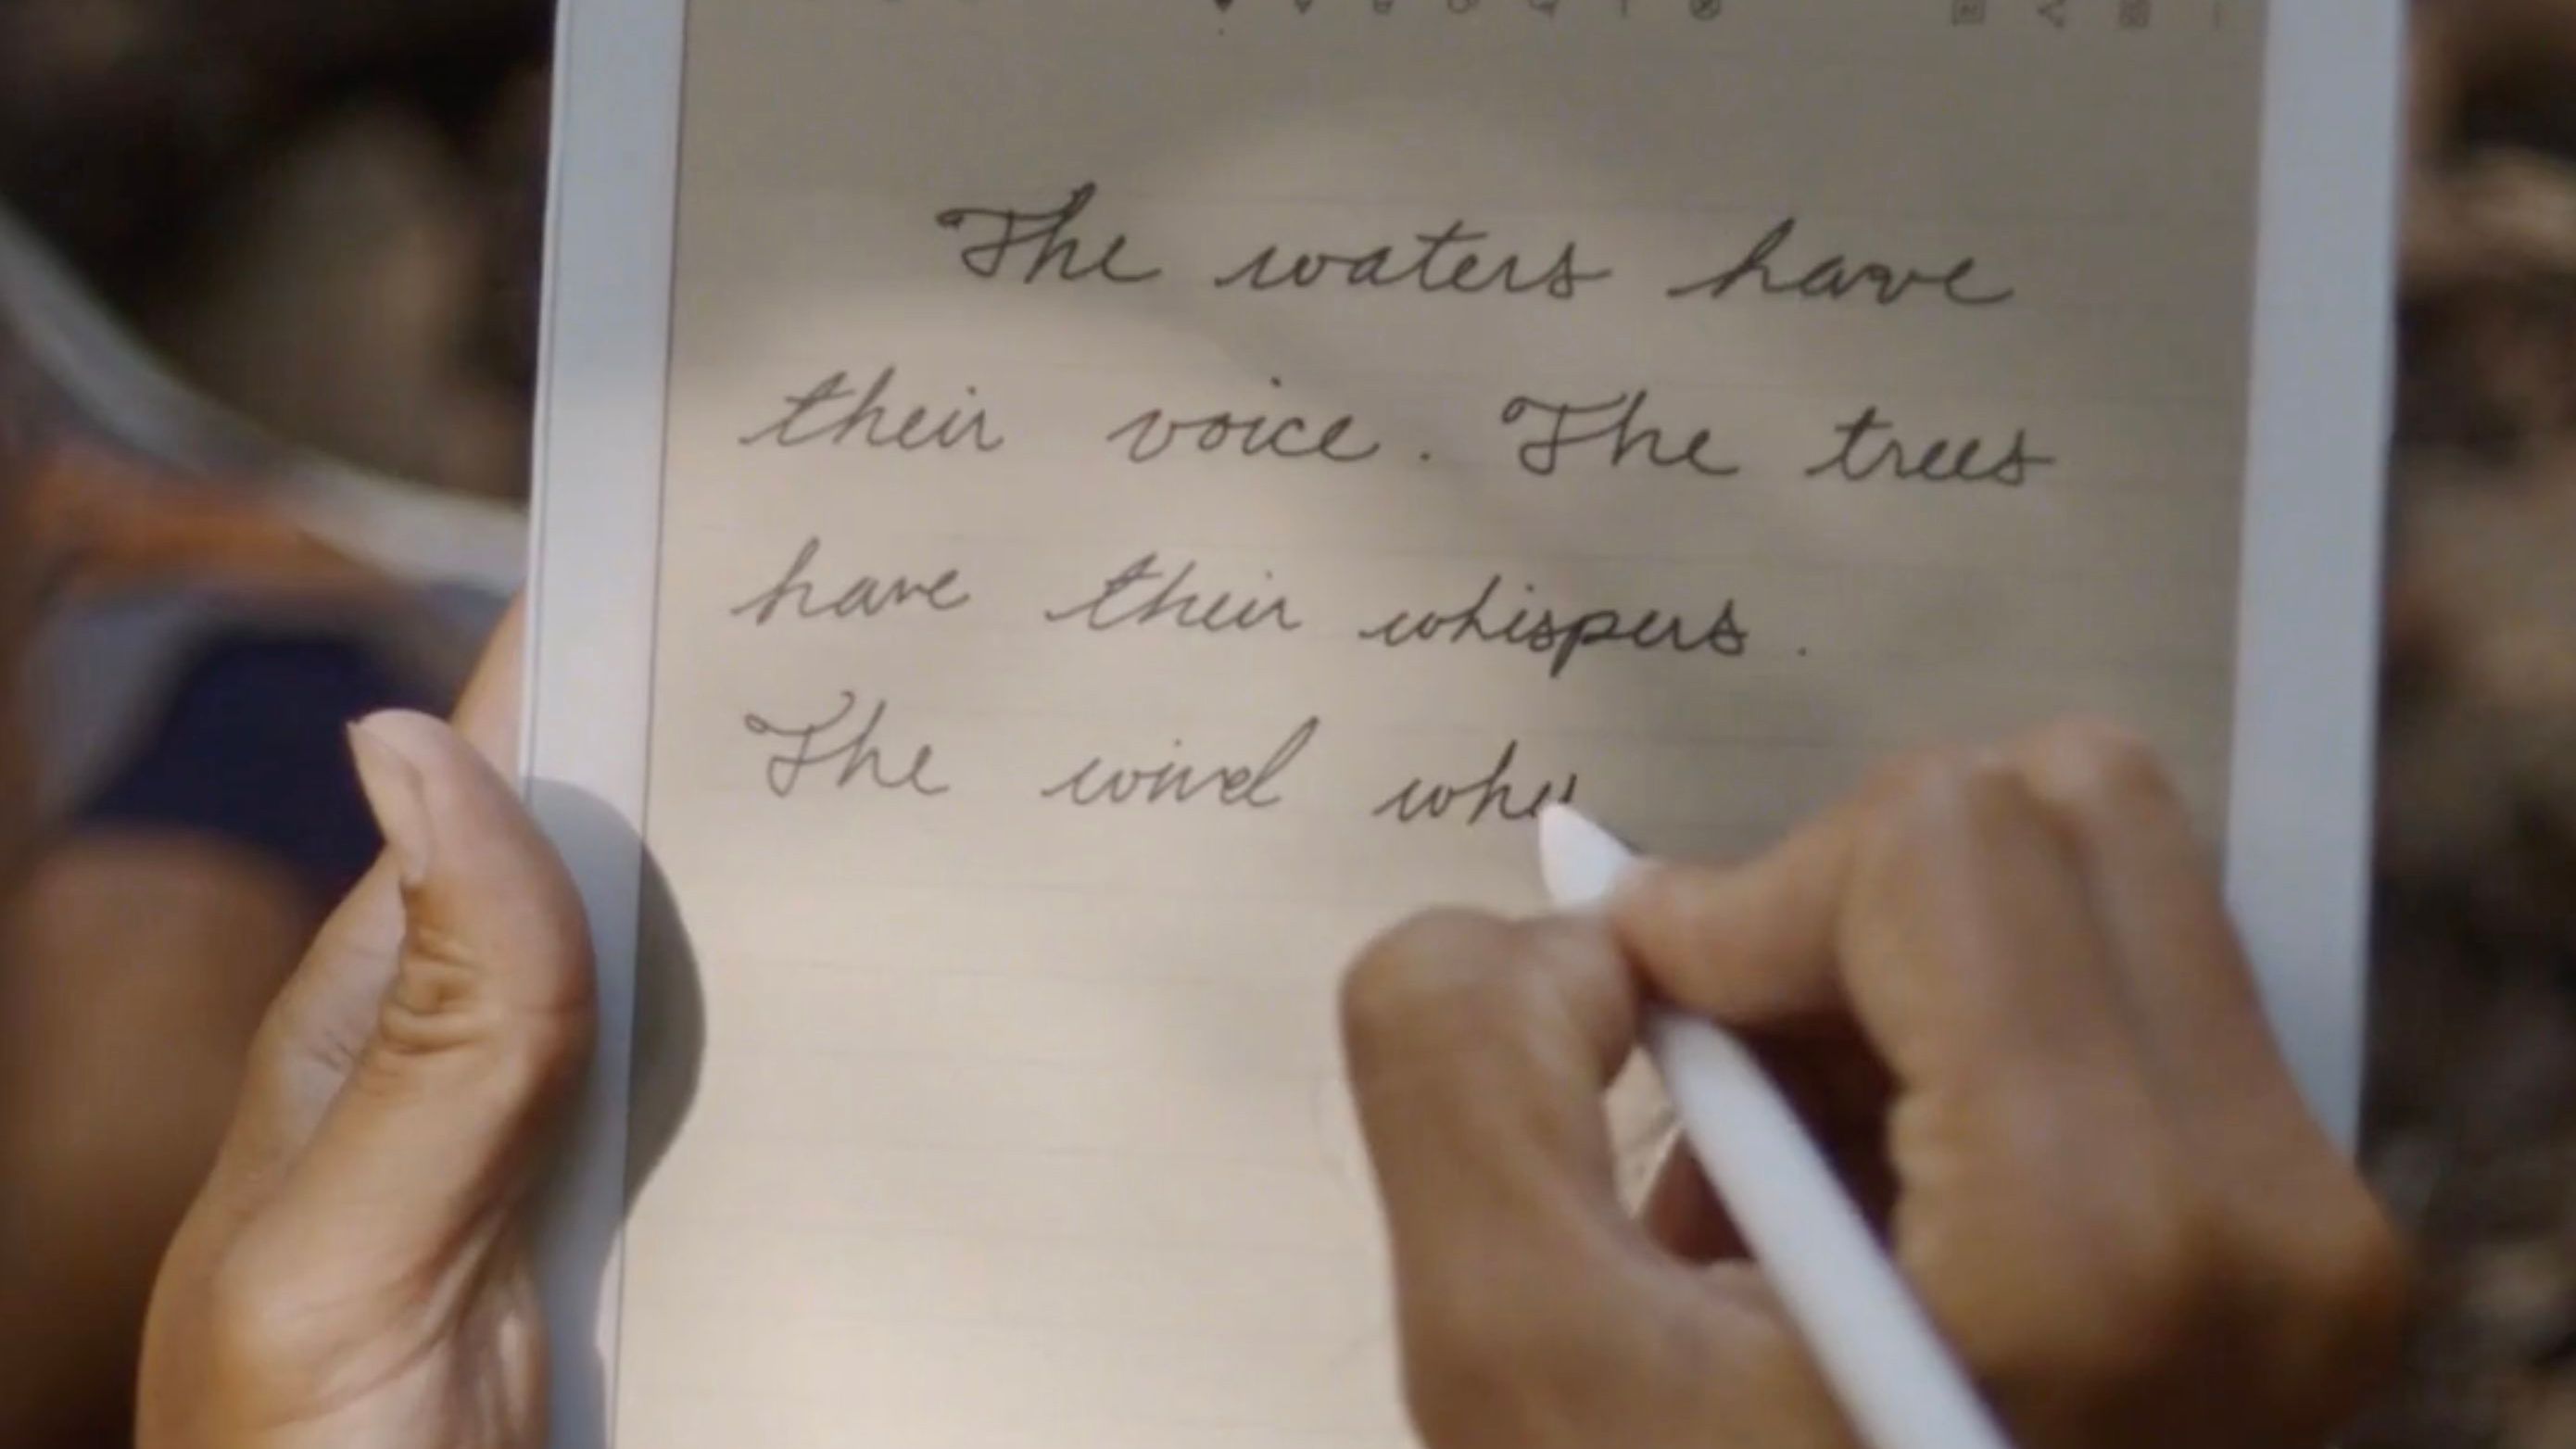 The waters have
their voice. The trees
have their whispers.
The wind whi